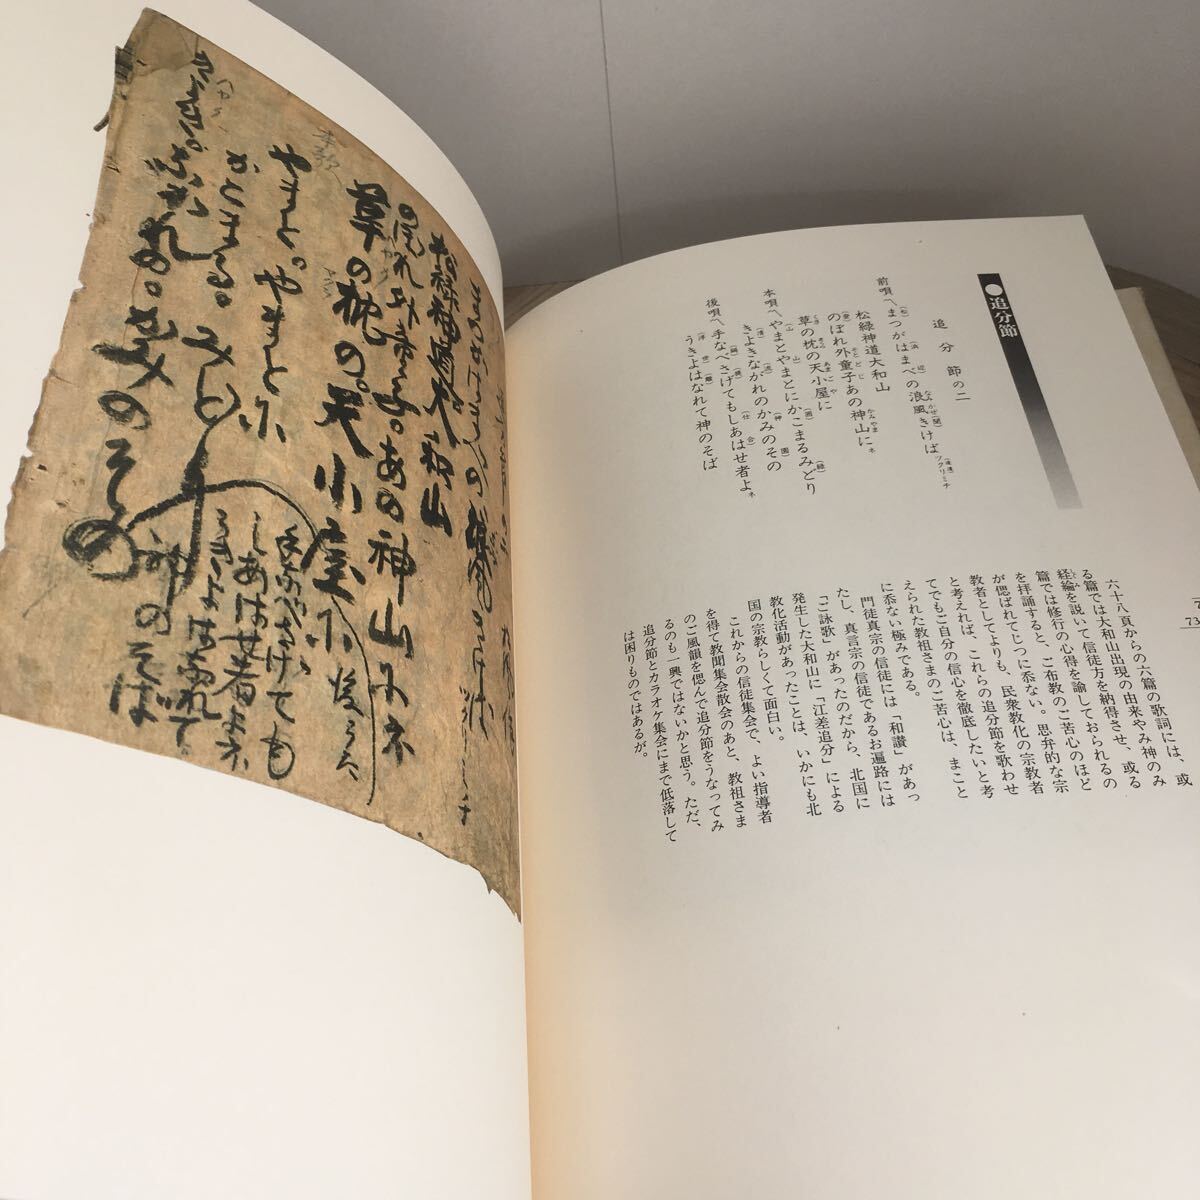 ●追分節
追分節の二
前唄へまつがはまべの浪風きけば ソクリーチ
松緑神道大和山
のぼれ外童子あの神山にネ
草の枕の天小屋に
本唄へやまとやまとにかこまるみどり
きよきながれのかみのその
後唄へ手なべさげてもしあはせ者よネ
うきよはなれて神のそば
六十八頁からの六篇の歌詞には、或
る篇では大和山出現の由来やみ神のみ
経綸を説いて信徒方を納得させ、或る
篇では修行の心得を諭しておられるの
を拝誦すると、ご布教のご苦心のほど
が偲ばれてじつに忝ない。思弁的な宗
教者としてよりも、民衆教化の宗教者
と考えれば、これらの追分節を歌わせ
てでもご自分の信心を徹底したいと考
えられた教祖さまのご苦心は、まこと
に忝ない極みである。
門徒真宗の信徒には「和讃」があっ
たし、真言宗の信徒であるお遍路には
「ご詠歌」があったのだから、北国に
発生した大和山に「江差追分」による
教化活動があったことは、いかにも北
国の宗教らしくて面白い。
これからの信徒集会で、よい指導者
を得て教聞集会散会のあと、教祖さま
のご風韻を偲んで追分節をうなってみ
るのも一興ではないかと思う。ただ、
追分節とカラオケ集会にまで低落して
は困りものではあるが。
73
松緑神道大和山
のぼれ外童子。あの神山にネ
草の枕の天小屋に
後うたへ
本歌
やまと。やまとに
かこまる。みどり
きよき。ながれの。かみのその
手なべさげても
しあはせ者よネ
うきよはなれて
神のそば